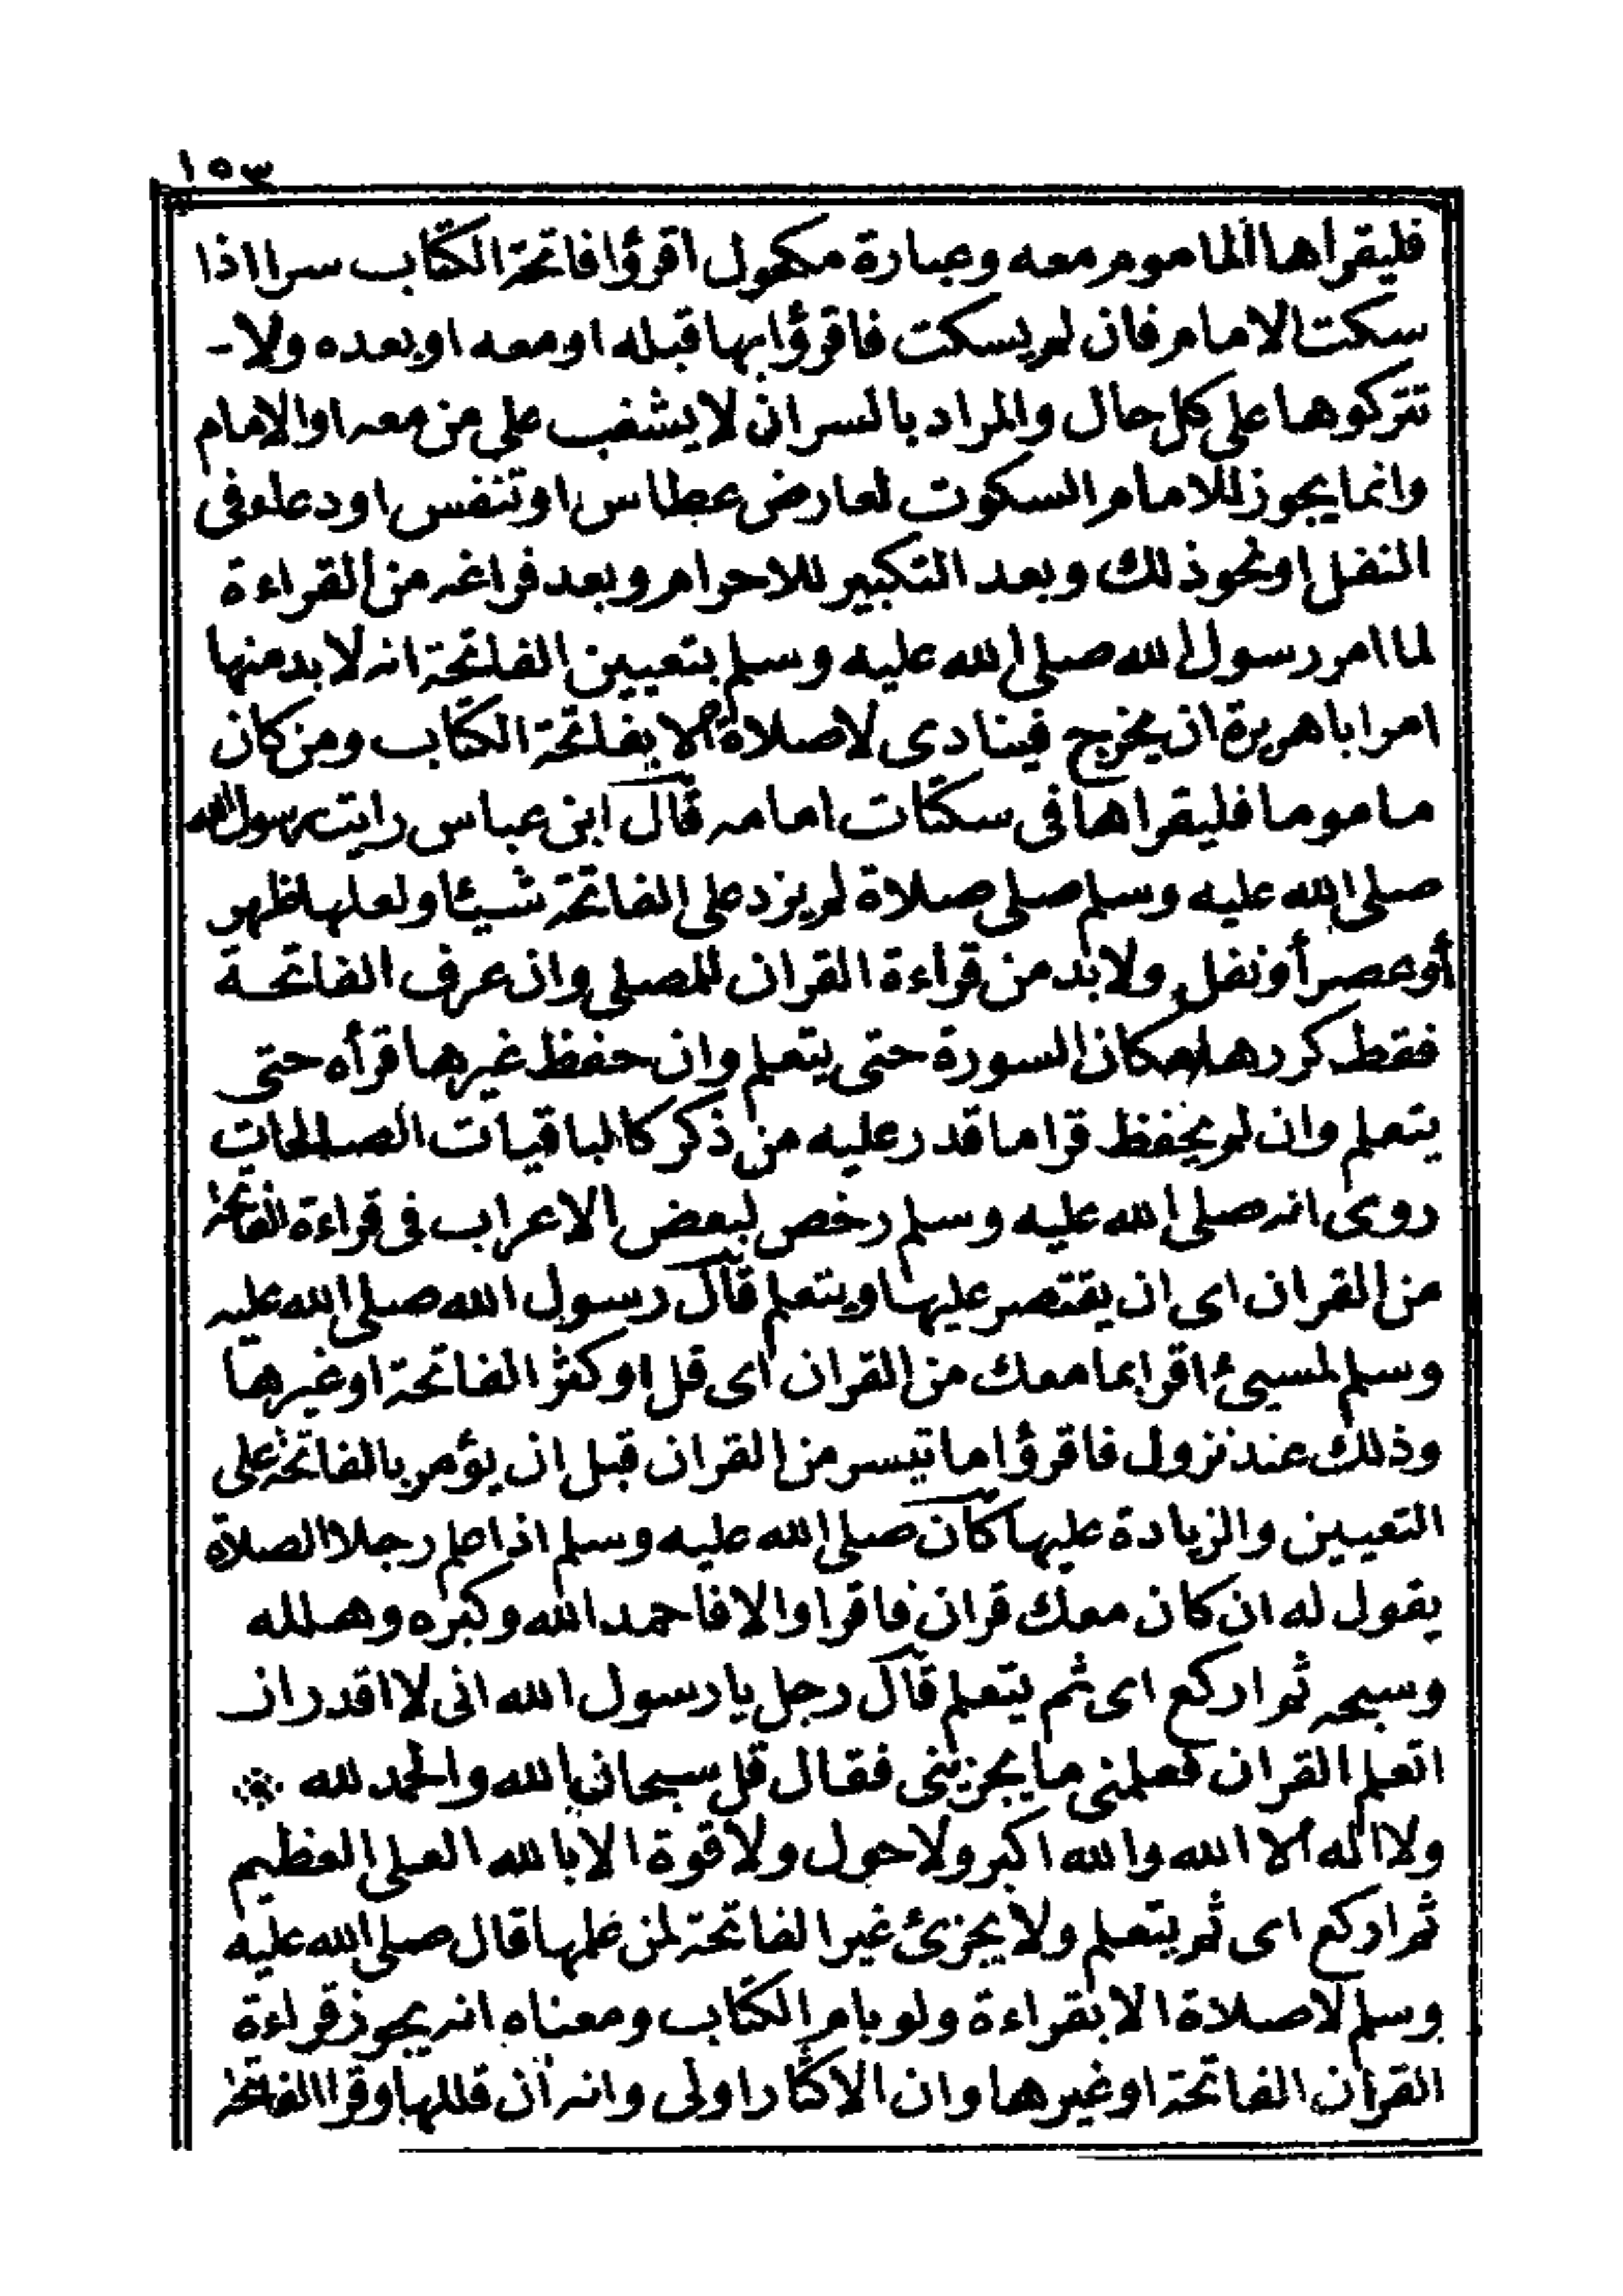 ١٥٣
فليقرأها المأموم معه وعبارة مكحول اقرؤا فاتحة الكتاب سرا اذا
سكت الامام فان لم يسكت فاقرؤا بها قبله او معه او بعده ولا-
تتركوها على كل حال والمراد بالسر ان لا يشغب على من معه او الامام
وانما يجوز للامام السكوت لعارض عطاس او تنفس او دعاء فى
النفل او نحو ذلك وبعد التكبير للاحرام وبعد فراغه من القراءة
لما امر رسول الله صلى الله عليه وسلم بتعيين الفاتحة انه لا بد منها
امر ابا هريرة ان يخرج فينادى لا صلاة الا بفاتحة الكتاب ومن كان
ماموما فليقراها فى سكتات امامه قال ابن عباس رايت رسول الله
صلى الله عليه وسلم صلى صلاة لم يزد على الفاتحة شيئا ولعلها ظهر
أو عصر أو نفل ولا بد من قراءة القران للمصلى وان عرف الفاتحة
فقط كررها مكان السورة حتى يتعلم وان حفظ غيرها قرأه حتى
يتعلم وان لم يحفظ قرا ما قدر عليه من ذكر كالباقيات الصالحات
روى انه صلى الله عليه وسلم رخص لبعض الاعراب فى قراءة الفاتحة
من القران اى ان يقتصر عليها ويتعلم قال رسول الله صلى الله عليه
وسلم لمسىء اقرا بما معك من القران اى قل او كثر الفاتحة او غيرها
وذلك عند نزول فاقرؤا ما تيسر من القران قبل ان يؤمر بالفاتحة على
التعيين والزيادة عليها كان صلى الله عليه وسلم اذا علم رجلا الصلاة
يقول له ان كان معك قران فاقرا والا فاحمد الله وكبره وهلله
وسبحه ثم اركع اى ثم يتعلم قال رجل يا رسول الله انى لا اقدر ان
اتعلم القران فعلمنى ما يجزينى فقال قل سبحان الله والحمد لله ※
ولا اله الا الله والله اكبر ولا حول ولا قوة الا بالله العلى العظيم
ثم اركع اى ثم يتعلم ولا يجزئ غير الفاتحة لمن علمها قال صلى الله عليه
وسلم لا صلاة الا بقراءة ولو بام الكتاب ومعناه انه يجوز قراءة
القران الفاتحة او غيرها وان الاكثار اولى وانه ان قللها وقرا الفاتحة